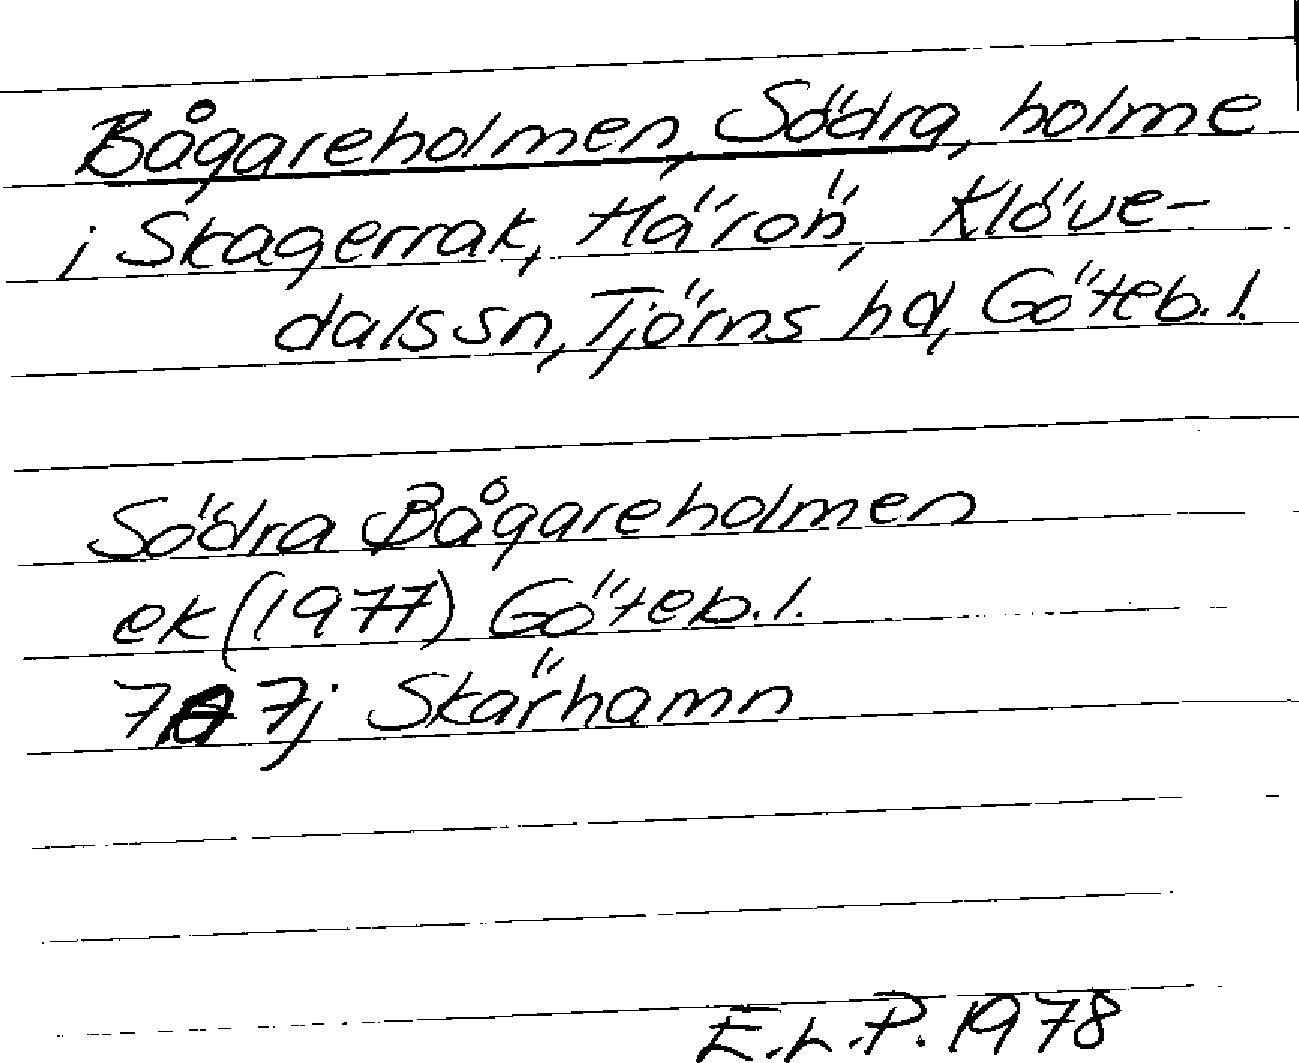 Bågareholmen, Södra, holme
i Skagerrak, Härön, Klöve-
dals sn, Tjörns hd, Göteb. l.
Södra Bågareholmen
ek (1977) Göteb. l.
7A 7j Skärhamn
E.L.P. 1978